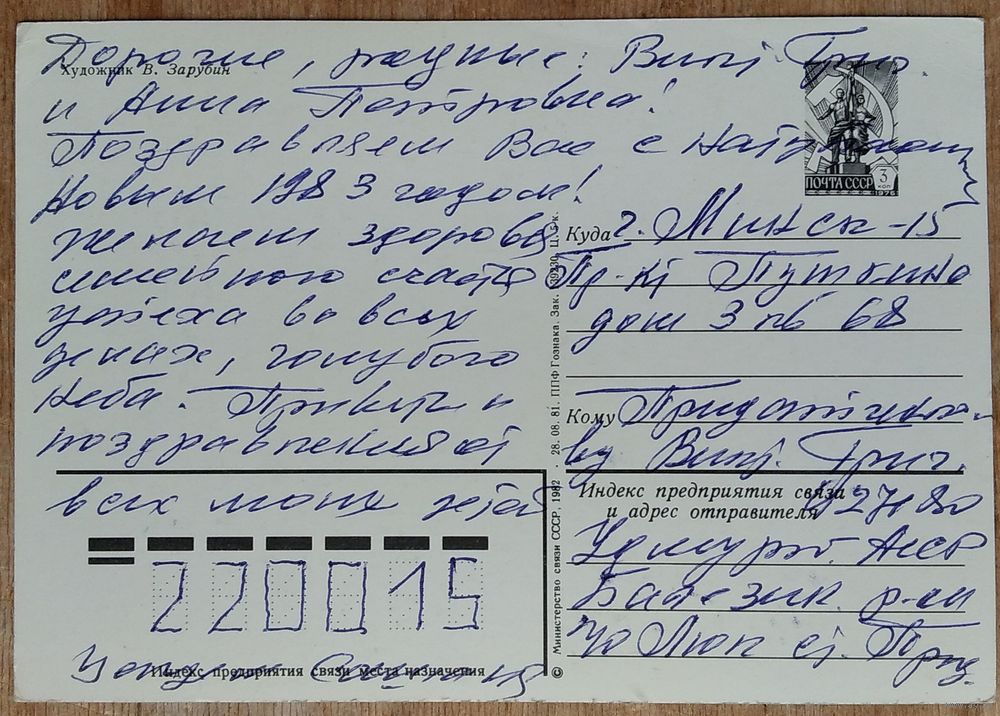 Дорогие, родные: Викт. Григ.
Художник В. Зарубин
и Анна Петровна!
Поздравляем Вас с наступающим
Новым 1983 годом!
Желаем здоровья
семейного счастья
успеха во всех
делах, голубого
неба. Привет и
поздравления от
всех моих детей
220015
Индекс предприятия связи места назначения
ПОЧТА СССР
3 коп
1976
Куда г. Минск-15
Пр-кт Пушкина
дом 3 кв 68
Кому
ву Викт. Григ.
Индекс предприятия связи
и адрес отправителя 427180
Удмуртс. АССР
Балезин. р-он
п/о Люк от
© Министерство связи СССР, 1982 · 28. 08. 81. ППФ Гознака. Зак. Ц. 5 к.